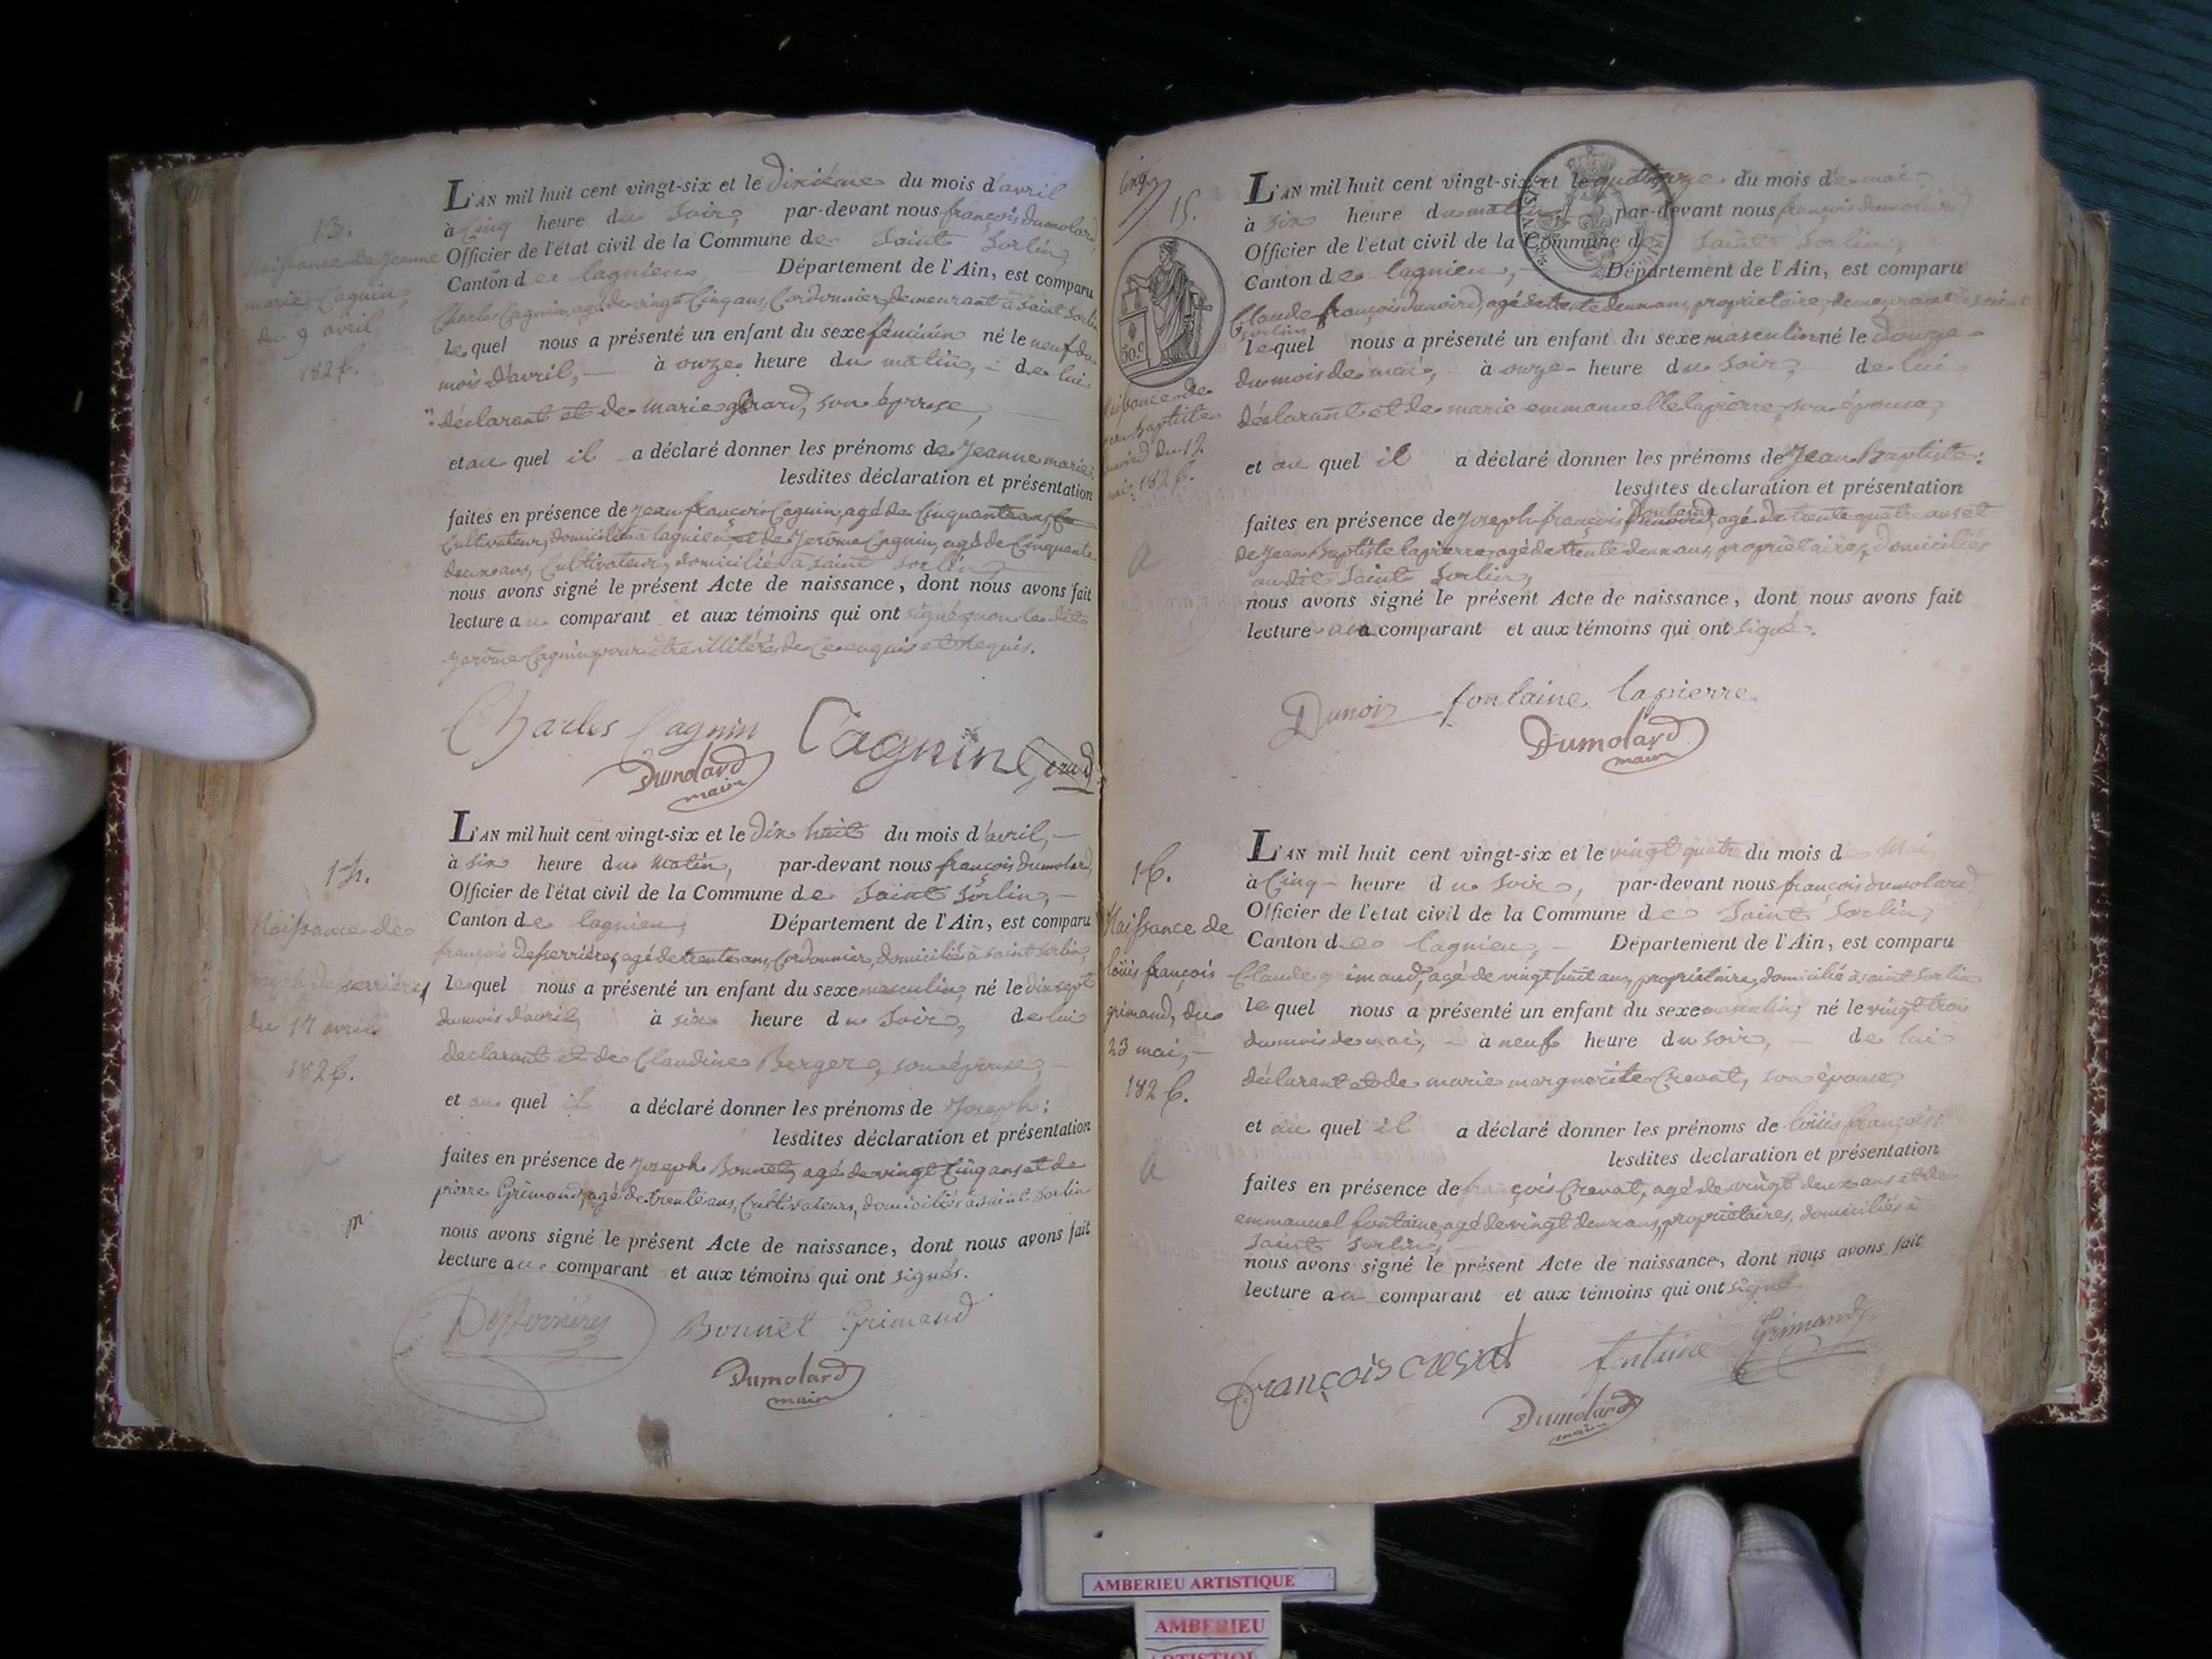 13.
Naissance de Jeanne
marie Cagnin,
du 9 avril
1826.
L'AN mil huit cent vingt-six et le dixième du mois d'avril
à cinq heure du soir, par-devant nous françois dumolard,
Officier de l'état civil de la Commune de Saint Sorlin,
Canton de lagnieu, Département de l'Ain, est comparu
Charles Cagnin, agé de vingt cinq ans, Cordonnier, demeurant à Saint Sorlin
lequel nous a présenté un enfant du sexe féminin né le neuf du
mois d'avril, à onze heure du matin, de lui
déclarant et de marie gérard, son épouse,
et au quel il a déclaré donner les prénoms de Jeanne marie:
lesdites déclaration et présentation
faites en présence de Jean françois Cagnin, agé de cinquante ans,
Cultivateur, domicilié à lagnieu et de Jerome Cagnin, agé de Cinquante
deux ans, Cultivateur, domicilié à Saint Sorlin,
nous avons signé le présent Acte de naissance, dont nous avons fait
lecture au comparant et aux témoins qui ont signé, non le dit
Jerôme Cagnin pour être illitéré de ce enquis et Requis.
Charles Cagnin Cagnin
Dumolard
maire
14.
Naissance de
joseph desserrières
du 17 avril
1826.
L'AN mil huit cent vingt-six et le dix huit du mois d'avril,
à six heure du matin, par-devant nous françois dumolard,
Officier de l'état civil de la Commune de Saint Sorlin,
Canton de lagnieu, Département de l'Ain, est comparu
françois desserrières, agé de trente ans, Cordonnier, domicilié à saint sorlin,
lequel nous a présenté un enfant du sexe masculin, né le dix sept
du mois d'avril, à six heure du soir, de lui
declarant et de Claudine Berger, son épouse,
et au quel il a déclaré donner les prénoms de Joseph:
lesdites déclaration et présentation
faites en présence de Joseph Bonnet, agé de vingt cinq ans et de
pierre Grimand, agé de trente ans, Cultivateurs, domiciliés à saint Sorlin
nous avons signé le présent Acte de naissance, dont nous avons fait
lecture au comparant et aux témoins qui ont signés.
Desserrières Bonnet Grimand
Dumolard
maire
15.
50.c
Naissance de
jean Baptiste
du 12
mai, 1826.
L'AN mil huit cent vingt-six et le quatorze du mois de mai
à six heure du matin par-devant nous françois dumolard
Officier de l'état civil de la Commune de Saint Sorlin,
Canton de lagnieu, Département de l'Ain, est comparu
Claude françois dunoird, agé de trente deux ans, propriétaire, demeurant à saint
Sorlin
lequel nous a présenté un enfant du sexe masculin né le douze
du mois de mai, à onze heure du soir, de lui
déclarant et de marie emmanuelle lapierre, son épouse,
et au quel il a déclaré donner les prénoms de Jean Baptiste:
lesdites déclaration et présentation
fontaine
faites en présence de Joseph françois dunoird, agé de trente quatre ans et
de Jean Baptiste lapierre, agé de trente deux ans, propriétaires, domiciliés
audit Saint Sorlin,
nous avons signé le présent Acte de naissance, dont nous avons fait
lecture au comparant et aux témoins qui ont signé.
Dunoir fontaine lapierre
Dumolard
maire
16.
Naissance de
loüis françois
grimand, du
23 mai,
1826.
L'AN mil huit cent vingt-six et le vingt quatre du mois de Mai,
à Cinq heure du soir, par-devant nous françois dumolard
Officier de l'état civil de la Commune de Saint Sorlin,
Canton de lagnieu, Département de l'Ain, est comparu
Claude grimand, agé de vingt huit ans, propriétaire, domicilié à saint Sorlin
lequel nous a présenté un enfant du sexe masculin, né le vingt trois
du mois de mai, à neuf heure du soir, de lui
déclarant et de marie marguerite Crevat, son épouse,
et au quel il a déclaré donner les prénoms de loüis françois:
lesdites déclaration et présentation
faites en présence de françois Crevat, agé de vingt deux ans et de
emmanuel fontaine, agé de vingt deux ans, propriétaires, domiciliés à
Saint Sorlin,
nous avons signé le présent Acte de naissance, dont nous avons fait
lecture au comparant et aux témoins qui ont signé.
françois crevat fontaine Grimand
Dumolard
maire
AMBERIEU ARTISTIQUE
AMBERIEU
ARTISTIQUE